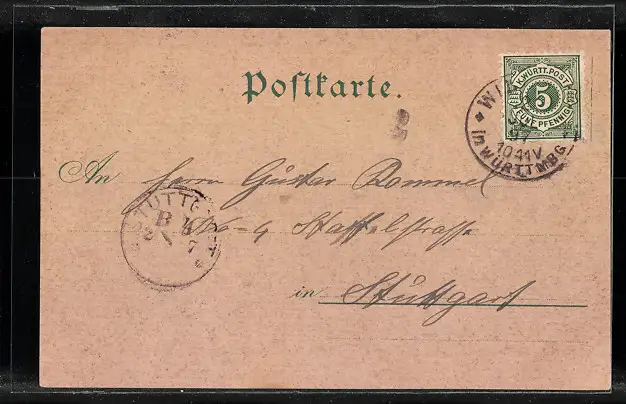 Postkarte.
K. WÜRTT. POST
5
FÜNF PFENNIG
10-11 V
in WÜRTTMBG
An Herrn Gustav Rommel
Staffelstrasse
in Stuttgart
STUTTG
B